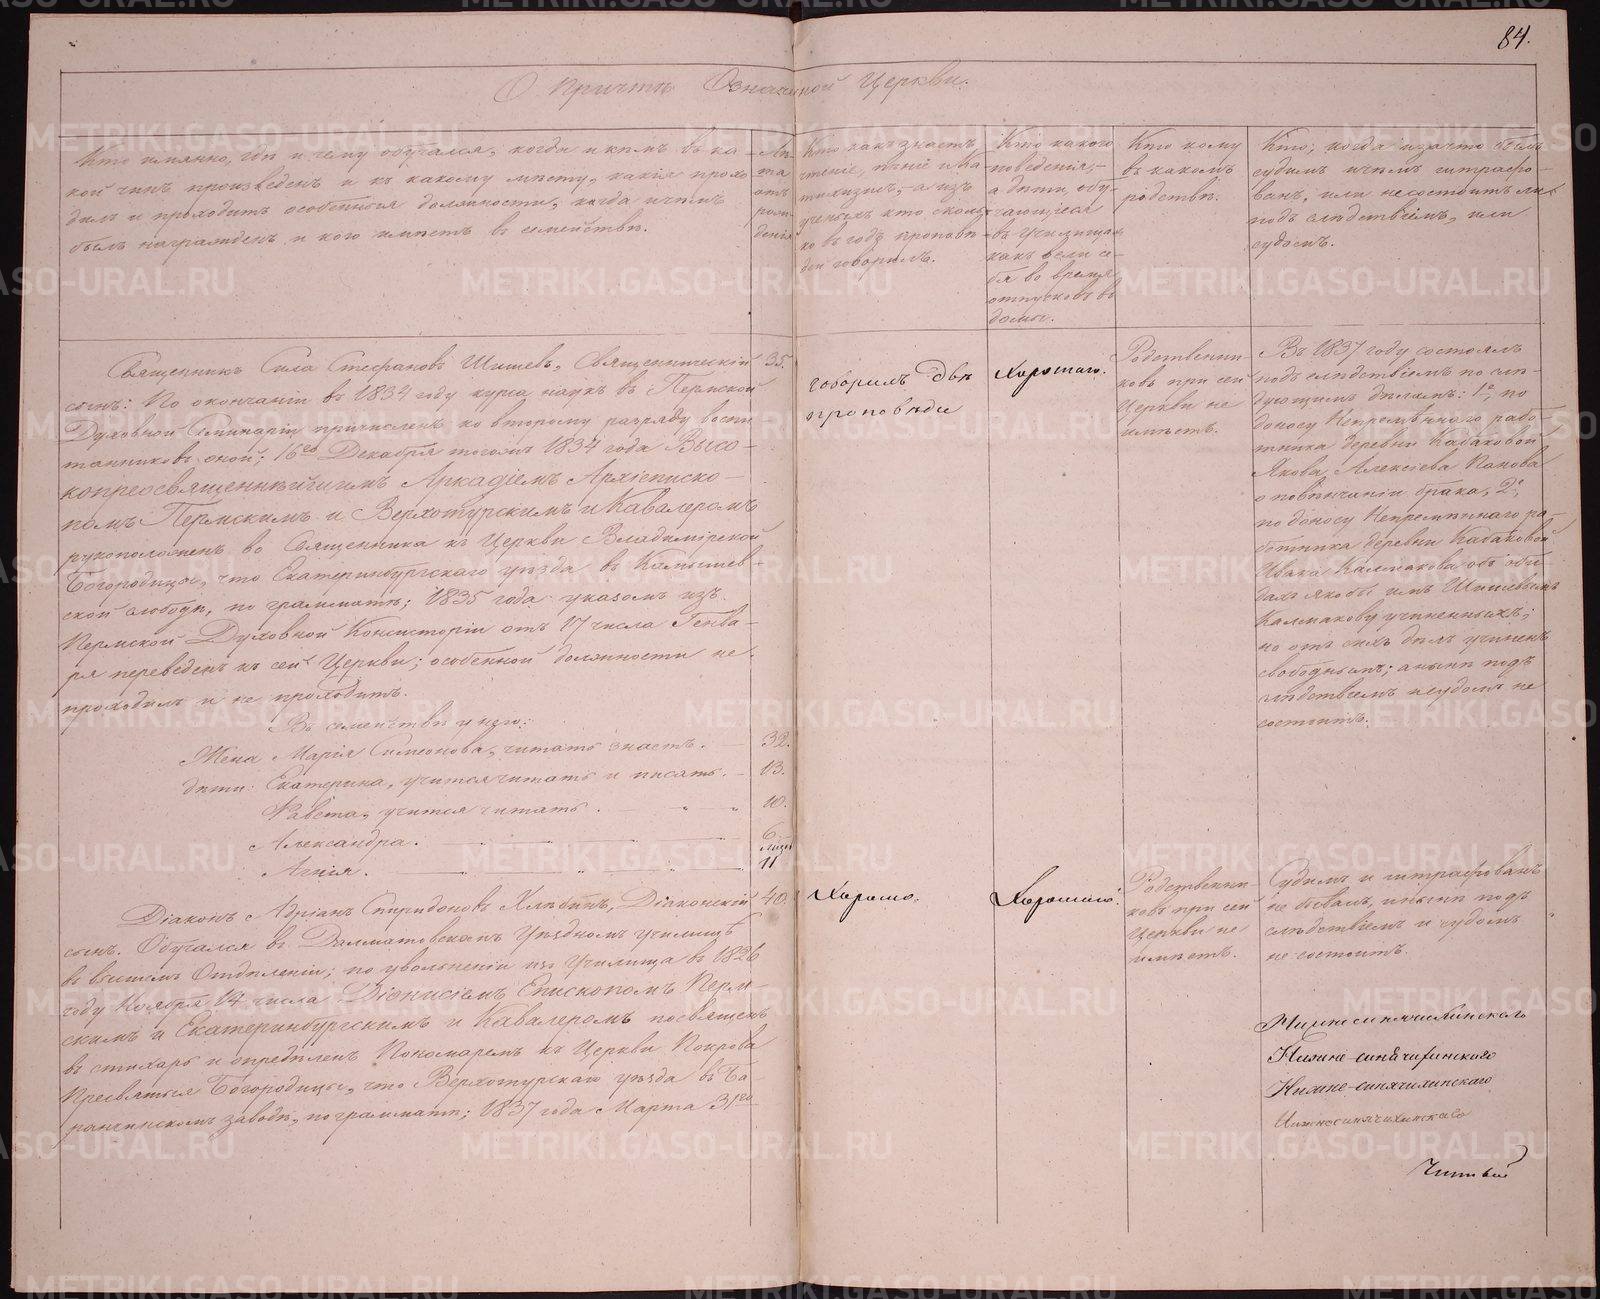 84.
О Причтѣ Означенной Церкви.
Кто имянно, гдѣ и чему обучался, когда и кѣмъ въ ка
кой чинъ произведенъ и къ какому мѣсту, какія прохо
дилъ и проходитъ особенныя должности, когда и чѣмъ
былъ награжденъ и кого имѣетъ въ семействѣ.
Лѣ-
та
отъ
рож-
денія
Кто какъ знаетъ
чтеніе, пѣніе и Ка
тихизисъ, а изъ
ученыхъ кто сколь-
ко въ годъ проповѣ
дей говорилъ.
Кто какого
поведенія,
а дѣти, обу-
чающіеся
въ Училищахъ
какъ вели се-
бя во время
отпусковъ въ
домы.
Кто кому
въ какомъ
родствѣ.
Кто, когда и за что былъ
судимъ и чѣмъ штрафо-
ванъ, или не состоитъ ли
подъ слѣдствіемъ, или
судомъ.
Священникъ Сила Стефановъ Шишевъ, Священническій
сынъ: По окончаніи въ 1834 году курса наукъ въ Пермской
Духовной Семинаріи причисленъ ко второму разряду воспи
танниковъ оной; 16го Декабря тогожъ 1834 года Высо-
копреосвященнѣйшимъ Аркадіемъ Архіеписко-
помъ Пермскимъ и Верхотурскимъ и Кавалеромъ
рукоположенъ во Священника къ Церкви Владимірской
Богородицы, что Екатеринбургскаго уѣзда въ Камышев-
ской слободѣ, по граммать; 1835 года указомъ изъ
Пермской Духовной Консисторіи отъ 17 числа Генва-
ря переведенъ къ сей Церкви; особенной должности не
проходилъ и не проходитъ.
Въ семействѣ у него:
Жена Марія Симеонова, читать знаетъ.
дѣти: Екатерина, учится читать и писать.
Павета, учится читать.
Александра.
Агнія.
35.
32.
13.
10.
6
11
говорилъ двѣ
проповѣди
Хорошаго.
Родственни-
ковъ при сей
Церкви не
имѣетъ.
Въ 1837 году состоялъ
подъ слѣдствіемъ по слѣ-
дующимъ дѣламъ: 1е, по
доносу Непремѣннаго рабо-
тника деревни Кабаковой
Якова Алексіева Попова
о повѣнчаніи брака, 2е,
по доносу Непремѣннаго ра-
ботника деревни Кабаковой
Ивана Калмакова объ оби-
дахъ якобы имъ Шишевымъ
Калмакову учиненныхъ;
но отъ сихъ дѣлъ учиненъ
свободнымъ; а нынѣ подъ
слѣдствіемъ и судомъ не
состоитъ.
Діаконъ Адріанъ Спиридоновъ Хлѣбинъ, Діаконскій
сынъ. Обучался въ Далматовскомъ Уѣздномъ училищѣ
въ высшемъ Отдѣленіи; по увольненіи изъ Училища въ 1826
году Ноября 14 числа Діонисіемъ Епископомъ Перм-
скимъ и Екатеринбургскимъ и Кавалеромъ посвященъ
въ стихарь и опредѣленъ Пономаремъ къ Церкви Покрова
Пресвятыя Богородицы, что Верхотурскаго уѣзда въ Ба-
ранчинскомъ заводѣ, по граммать; 1837 года Марта 31го
40.
Хорошо.
Хорошаго.
Родственни
ковъ при сей
Церкви не
имѣетъ.
Судимъ и штрафованъ
не бывалъ, и нынѣ подъ
слѣдствіемъ и судомъ
не состоитъ.
Нижнесинячихинскаго
Нижне-синячихинского
Нижне-синячихинскаго
Нижнесинячихинскаго